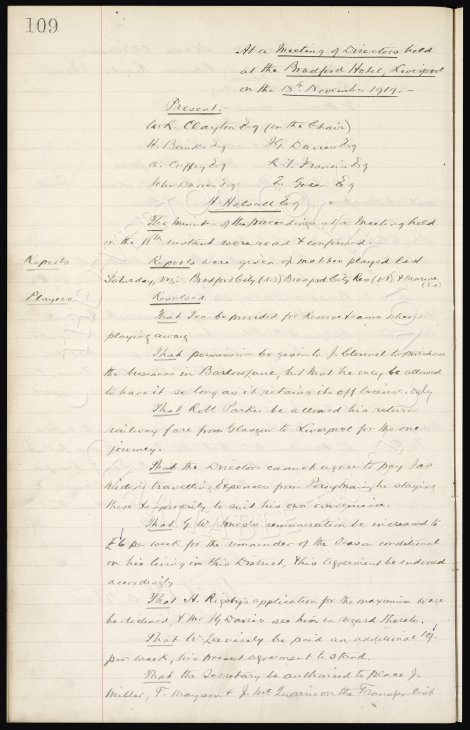 109
At a Meeting of Directors held
at the Bradford Hotel, Liverpool
on the 18th November 1919:-
Present:
W.R. Clayton Esq (in the Chair)
H. Banks Esq J.G. Davies Esq
A. Coffey Esq R.T. Francis Esq
John Davies Esq E. Green Esq
A. Halsall Esq
The Minutes of the proceedings at a Meeting held
on the 11th instant were read & confirmed.
Reports
Reports were given of matches played last
Saturday, viz:- Bradford City Bradford City Res & Marine
Players
Resolved
That Tea be provided for Reserve teams when
playing away
That permission be given to J. Clennel to purchase
the business in but that he only be allowed
to have it so long as it retains its off license only
That Robt. Parker be allowed his return
railway fare from Glasgow to Liverpool for the one
journey.
That the Directors cannot agree to pay Jas
travelling Expenses from he staying
there temporarily to suit his own convenience.
That G. W. remuneration be increased to
£6 per week for the remainder of the Season conditional
on his living in this District, & his agreement be endorsed
accordingly
That H. Rigsby's application for the maximum wage
be declined, & Mr J.G. Davies see him in regard thereto.
That W. be paid an additional 10/-
per week, his present agreement to stand.
That the Secretary be authorised to place J.
Miller, T. Mayson & J. on the Transfer list